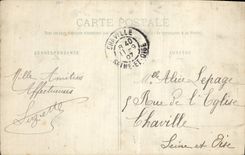 CARTE POSTALE
CORRESPONDANCE
CHAVILLE
8 40
11 -9
07
SEINE-ET-OISE
Mille Amitiés
Affectueuses
Mlle Alice Lepage
5 Rue de l'Eglise
Chaville
Seine et Oise